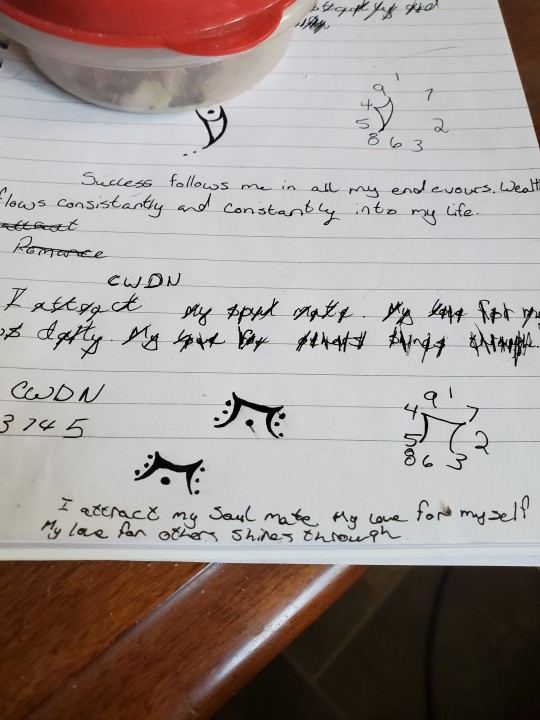 9 1 7
4
5 2
8 6 3
Success follows me in all my endevours. Wealth
flows consistantly and constantly into my life.
attract
Romance
CWDN
I attract my soul mate. My love for my
My love for others shines through
CWDN
3 7 4 5
9 1
4 7
5 2
8 6 3
I attract my Soul mate My Love for myself
My love for others shines through